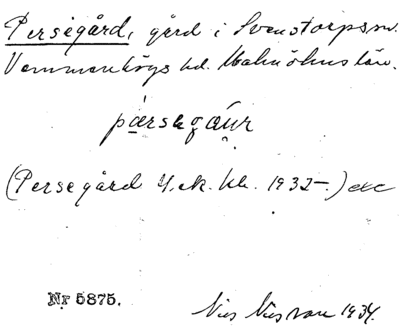 Persegård, gård i Svenstorps sn.
Vemmenhögs hd. Malmöhus län.
pärsəgåur
(Persegård Y.ek. bl. 1932–.) etc
Nr 5875.
1934.